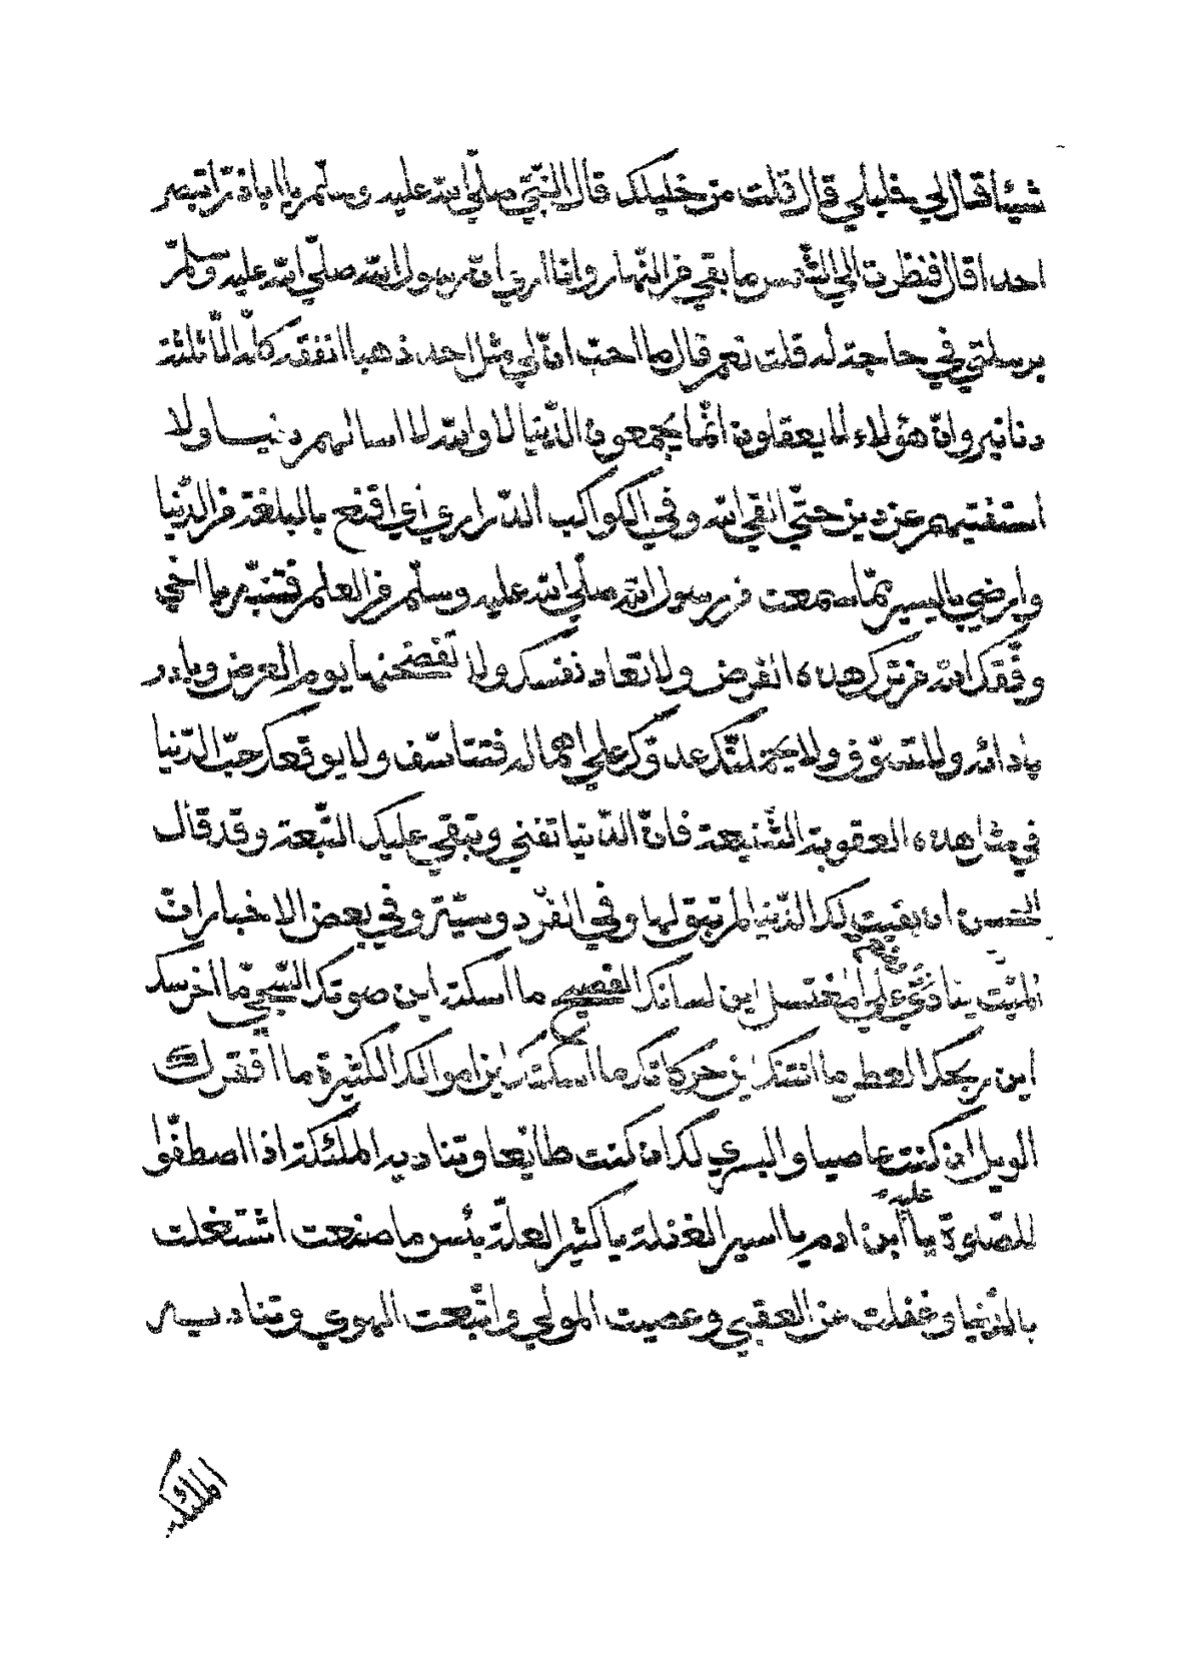 شيئا قال لي خليلي قال قلت من خليلك قال النبيّ صلّي الله عليه وسلّم يا ابا ذرّ اتبصر
احدا قال فنظرت الي الشّمس ما بقي من النّهار وانا اري انّ رسول الله صلّي الله عليه وسلّم
يرسلني في حاجة له قلت نعم قال ما احبّ انّ لي مثل احد ذهبا انفقه كلّه الّا ثلثة
دنانير وانّ هؤلاء لا يعقلون انّما يجمعون الدّنيا لا والله لا اسالهم دنيا ولا
استفتيهم عن دين حتّي القي الله وفي الكواكب الدّراري اي اقنع بالبلغة من الدّنيا
وارضي باليسير ممّا سمعت من رسول الله صلّي الله عليه وسلّم من العلم فتنبّه يا اخي
وفّقك الله من ترك هذه الفرض ولا تعاد نفسك ولا تفضحنها يوم العرض وبادر
بادائه ولا تسوّف ولا يحملنّك عدوّك علي اهماله فتتاسّف ولا يوقعك حبّ الدّنيا
في مثل هذه العقوبة الشّنيعة فانّ الدّنيا تفني وتبقي عليك التّبعة وقد قال
الحسن ان بقيت لك الدّنيا لم تبق لها وفي الفردوسيّة وفي بعض الاخبار انّ
الميّت ينادي علي المغتسل اين لسانك الفصيح ما اسكته اين صوتك الشّجيّ ما اخرسك
اين ريحك العطر ما انتنك اين حركاتك ما اسكنك اين اموالك الكثيرة ما افقرك
الويل ان كنت عاصيا والبشري لك ان كنت طائعا وتناديه الملئكة اذا اصطفّوا
عليه
للصّلوة يا ابن ادم يا اسير الغفلة يا كثير العلّة بئس ما صنعت اشتغلت
بالدّنيا وغفلت عن العقبي وعصيت المولي واتّبعت الهوي وتناديه
الملئكة